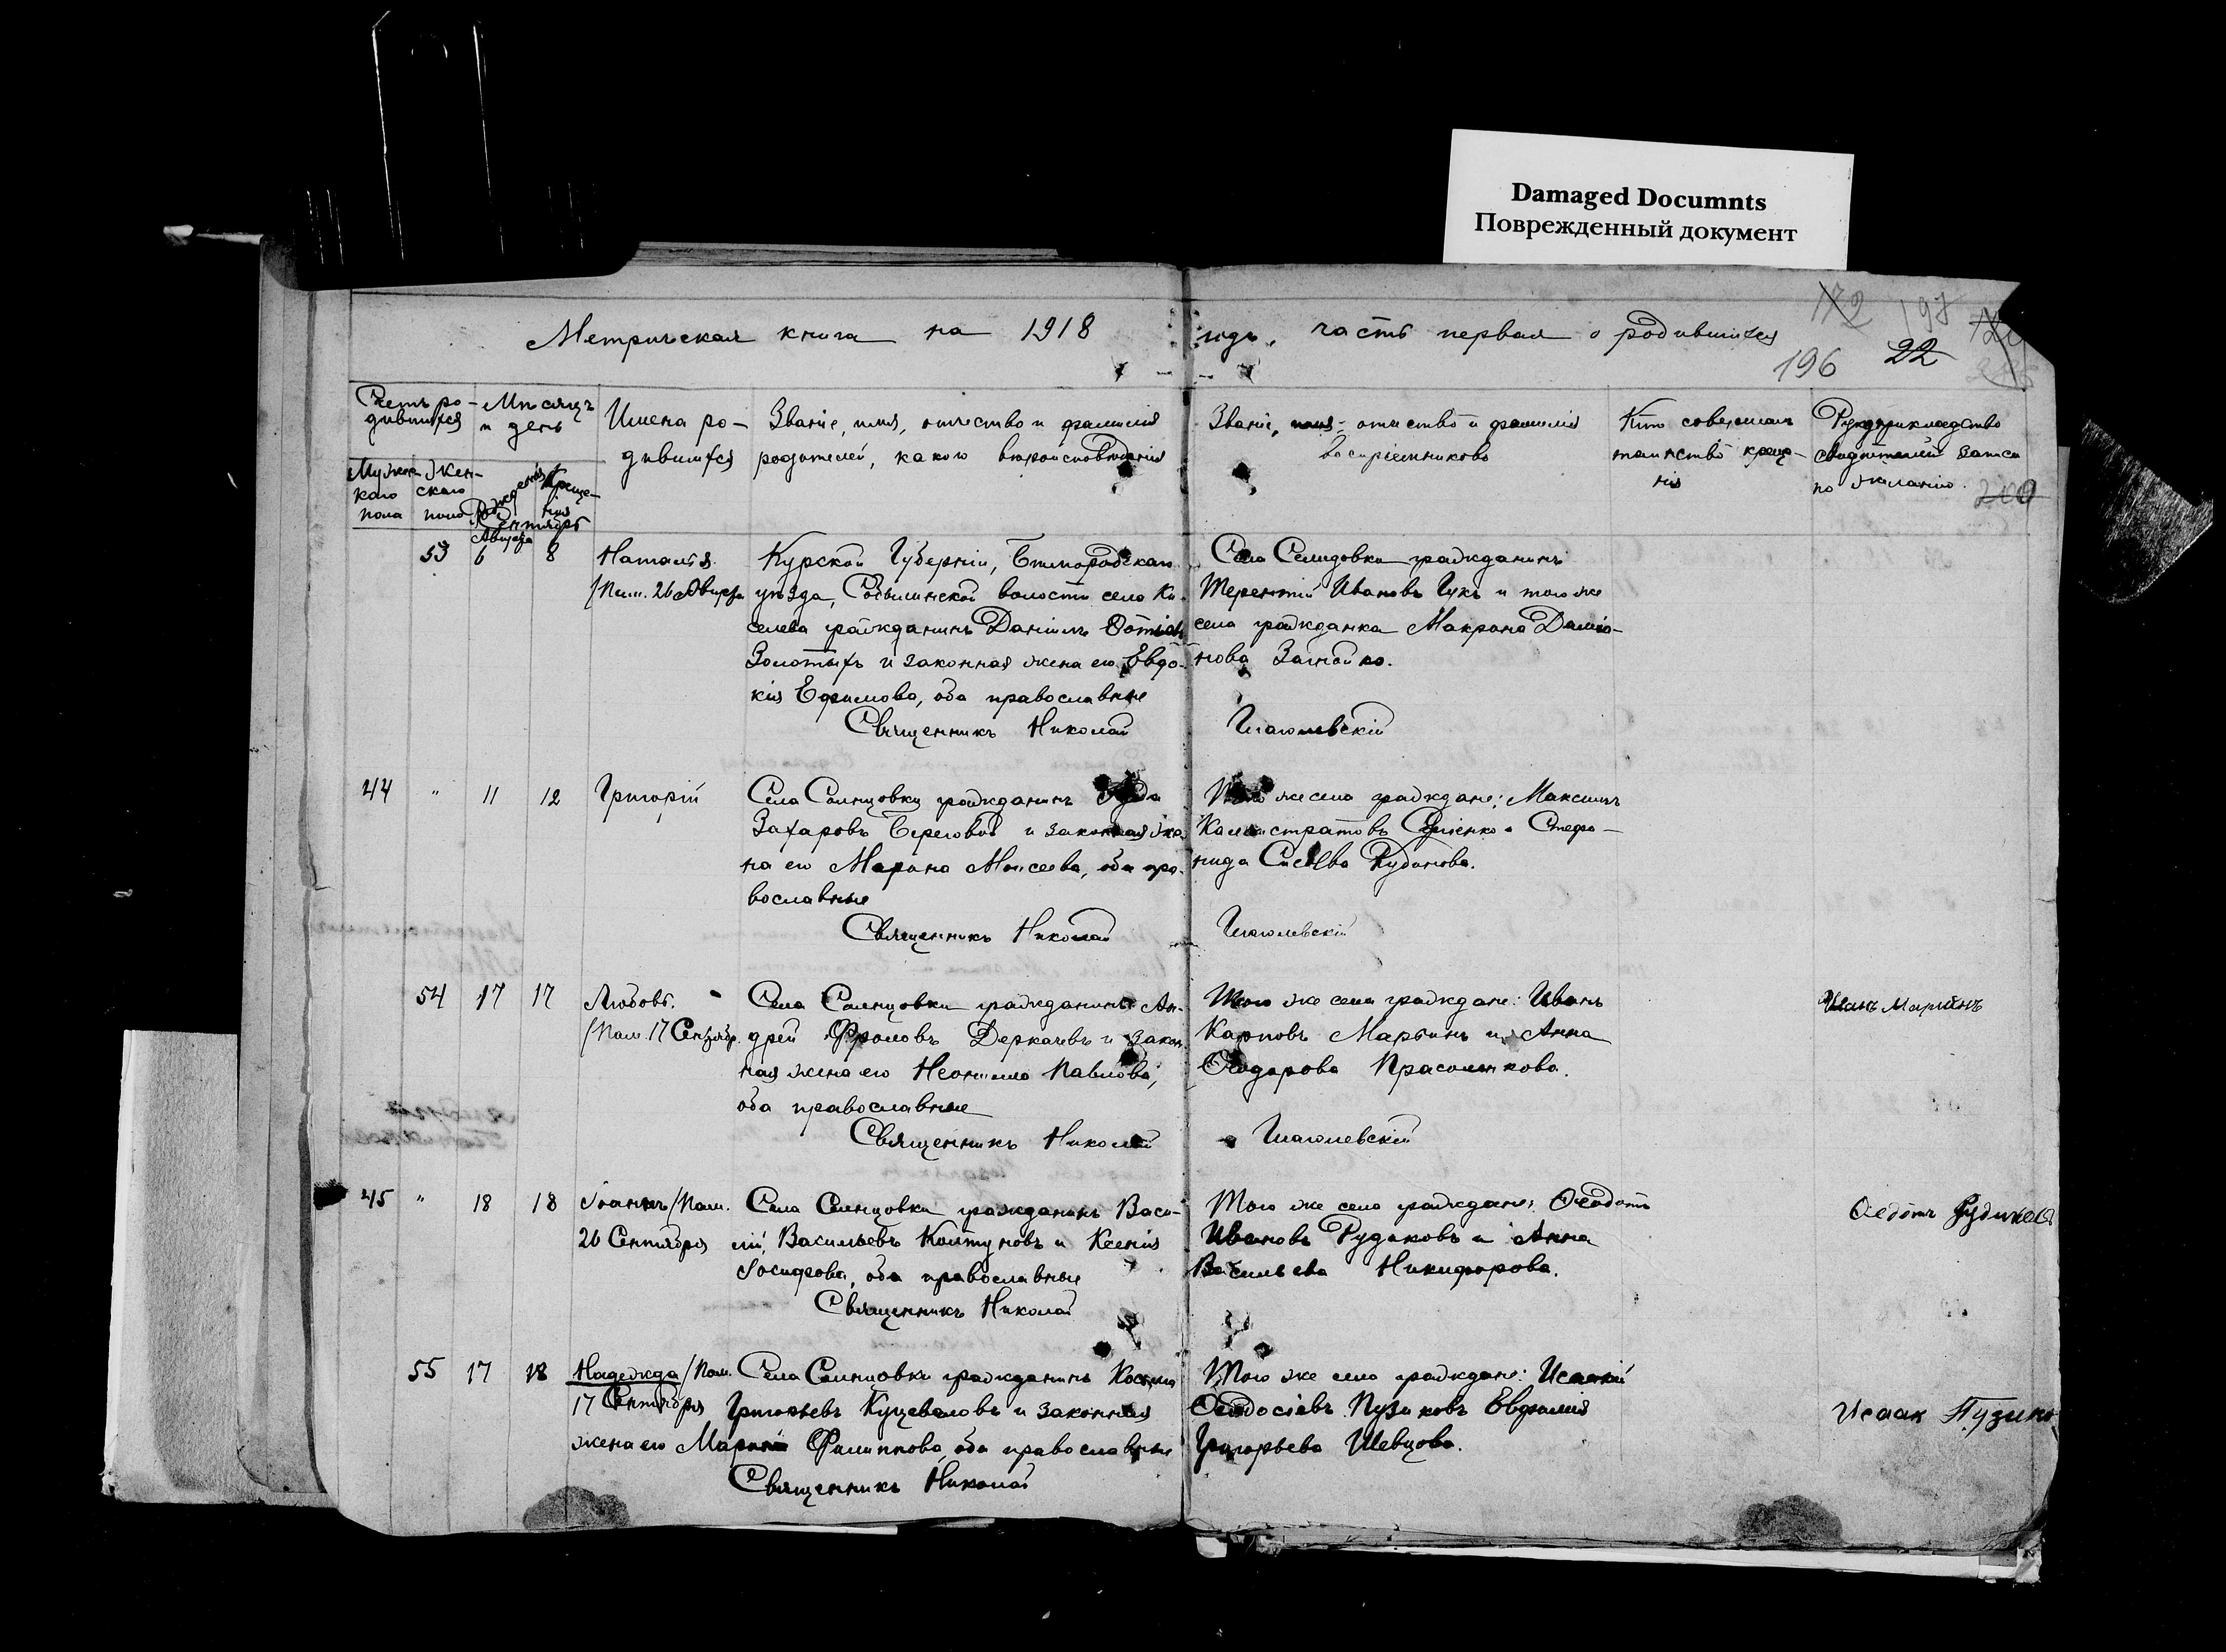 Damaged Documnts
Поврежденный документ
172 197
196 22
Метрическая книга на 1918 годъ, часть первая о родившихся
Счетъ ро-
дившихся
Мѣсяцъ
и день
Имена ро-
дившихся
Званіе, имя, отчество и фамилія
родителей, какого вѣроисповѣданія
Званіе, имя, отчество и фамилія
воспріемниковъ
Кто совершалъ
таинство креще-
нія
Рукоприкладство
свидѣтелей записи
по желанію.
200
Муже-
каго
пола
Жен-
скаго
пола
Рожденія
Креще-
нія
Сентябрь
Августа
53 6 8 Наталія
/Пам. 26 Августа
Курской Губерніи, Бѣлгородскаго
уѣзда, волости село Ки-
селева гражданинъ Даніилъ
Золотыхъ и законная жена его Евдо-
кія Ефимова, оба православные
Села Селидовки гражданинъ
Терентій Ивановъ Гукъ и того же
села гражданка Макрина Даміа-
нова
Священникъ Николай Глаголевскій
44 " 11 12 Григорій
Села Солнцовки гражданинъ
Захаровъ Береговой и законная же-
на его Марина Моисеева, оба пра-
вославные
Того же села граждане: Максимъ
Калистратовъ Сергіенко и Стефа-
нида Рудакова.
Священникъ Николай Глаголевскій
54 17 17 Любовь.
/Пам. 17 Сентябр.
Села Солнцовки гражданинъ Ан-
дрей Фроловъ Деркачевъ и закон-
ная жена его Неонилла Павлова,
оба православные
Того же села граждане: Иванъ
Карповъ Марьинъ и Анна
Ѳеодорова Прасолова.
Иванъ Марьинъ
Священникъ Николай Глаголевскій
45 " 18 18 Іоаннъ /Пам.
26 Сентября
Села Солнцовки гражданинъ Васи-
лій Васильевъ Колтуновъ и Ксенія
Іосифова, оба православные
Того же села граждане: Ѳеодотъ
Ивановъ Рудаковъ и Анна
Васильева Никифорова.
Ѳедотъ Рудаковъ
Священникъ Николай
55 17 18 Надежда /Пам.
17 Сентября
Села Солнцовки гражданинъ Косьма
Григорьевъ Куцеваловъ и законная
жена его Марина Филиппова, оба православные
Того же села граждане: Исаакій
Ѳеодосіевъ Пузиковъ Евфимія
Григорьева Шевцова.
Исаак Пузико
Священникъ Николай